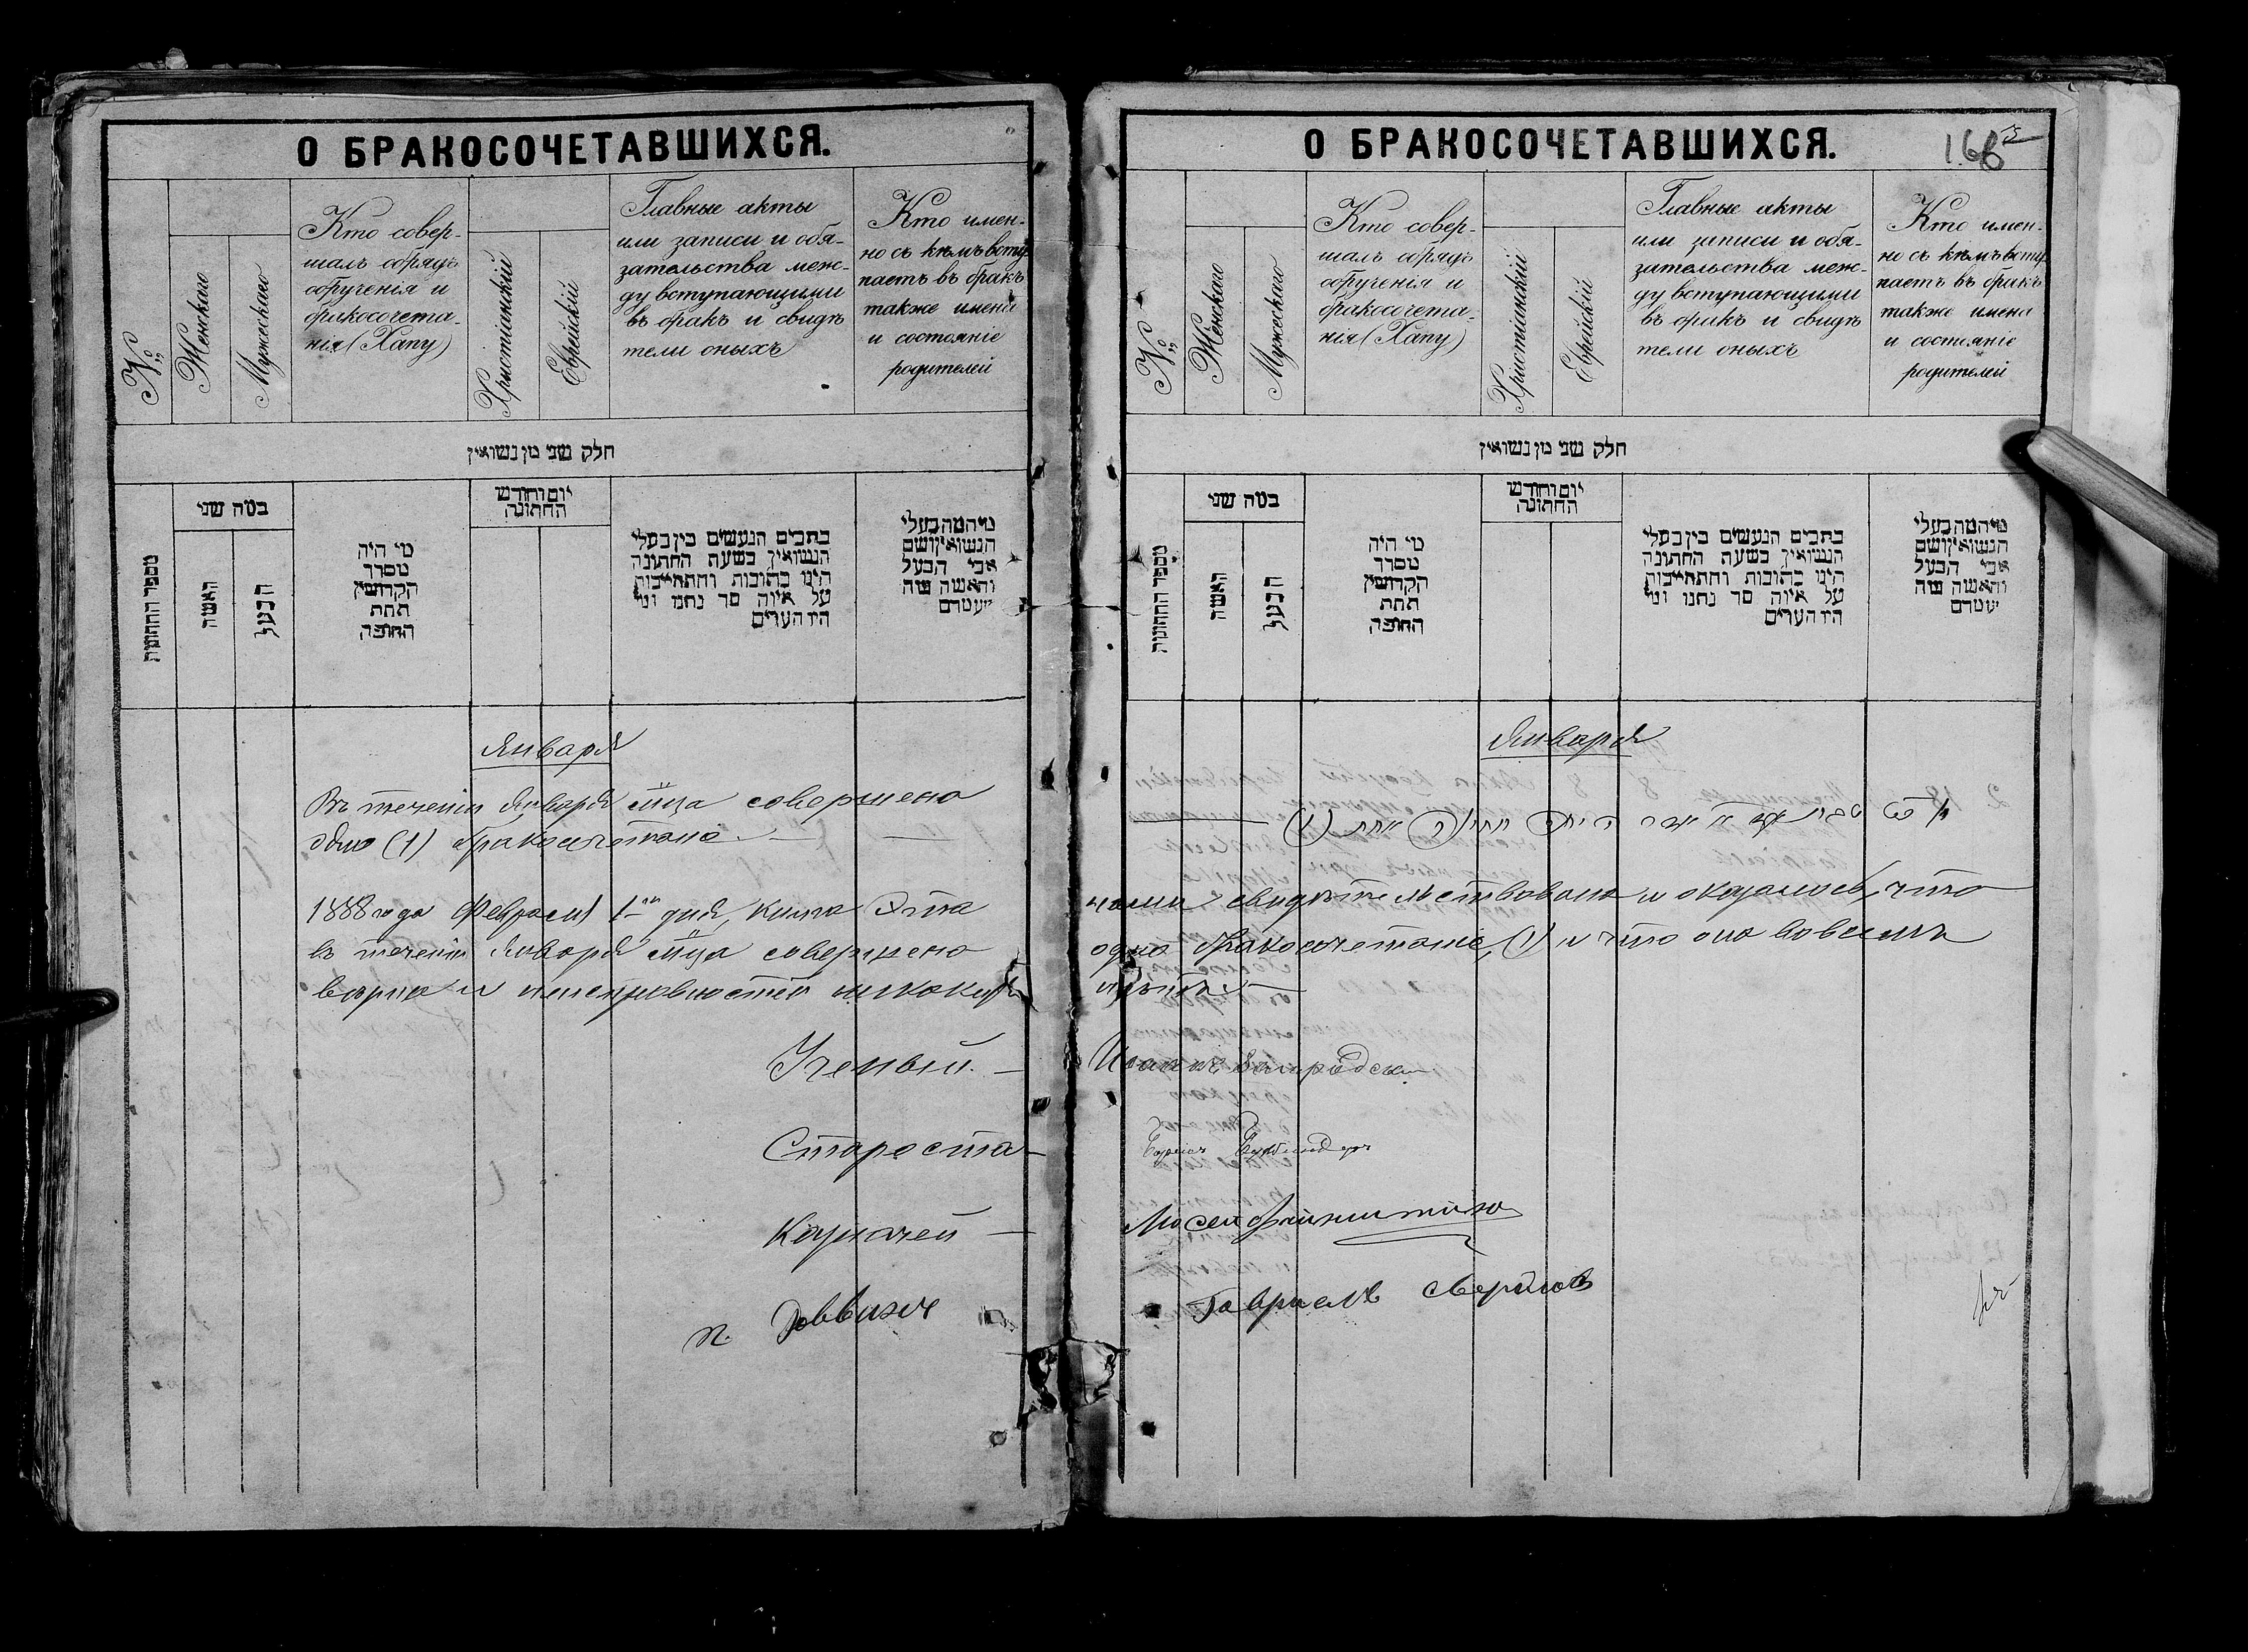 О БРАКОСОЧЕТАВШИХСЯ.
№
Женскаго
Мужескаго
Кто совер-
шалъ обрядъ
обрученія и
бракосочета-
нія (Хапу)
Христіанскій
Еврейскій
Главные акты
или записи и обя-
зательства меж-
ду вступающими
въ бракъ и свидѣ
тели оныхъ
Кто имен-
но съ кѣмъ всту
паетъ въ бракъ
также имена
и состояніе
родителей
חלק שני מן נשואין
מספר החתונות
כמה שני
האשה
הבעל
מי היה
מסדר
הקדושין
תחת
החופה
יום וחודש
החתונה
כתבים הנעשים בין בעלי
הנשואין בשעת החתונה
היינו כתובות והתחייבות
על איזה סך נתנו ומי
היו העדים
מי המה בעלי
הנשואין ושם
אבי הבעל
והאשה ומה
מעמדם
Января
Въ теченіи Января м-ца совершено
одно (1) бракосочетаніе
1888 года Февраля 1 дня, книга эта
въ теченіи Января м-ца совершено
вѣрно и неисправностей никакихъ
Ученый
Староста
Казначей
п. Раввина
О БРАКОСОЧЕТАВШИХСЯ.
166
№
Женскаго
Мужескаго
Кто совер-
шалъ обрядъ
обрученія и
бракосочета-
нія (Хапу)
Христіанскій
Еврейскій
Главные акты
или записи и обя-
зательства меж-
ду вступающими
въ бракъ и свидѣ
тели оныхъ
Кто имен-
но съ кѣмъ всту
паетъ въ бракъ
также имена
и состояніе
родителей
חלק שני מן נשואין
מספר החתונות
כמה שני
האשה
הבעל
מי היה
מסדר
הקדושין
תחת
החופה
יום וחודש
החתונה
כתבים הנעשים בין בעלי
הנשואין בשעת החתונה
היינו כתובות והתחייבות
על איזה סך נתנו ומי
היו העדים
מי המה בעלי
הנשואין ושם
אבי הבעל
והאשה ומה
מעמדם
Января
нами свидѣтельствована и оказалось, что
одно бракосочетаніе (1) и что она во всемъ
Мосей
Гавриель